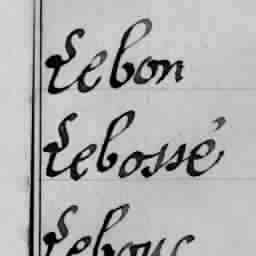 Lebon
Lebossé